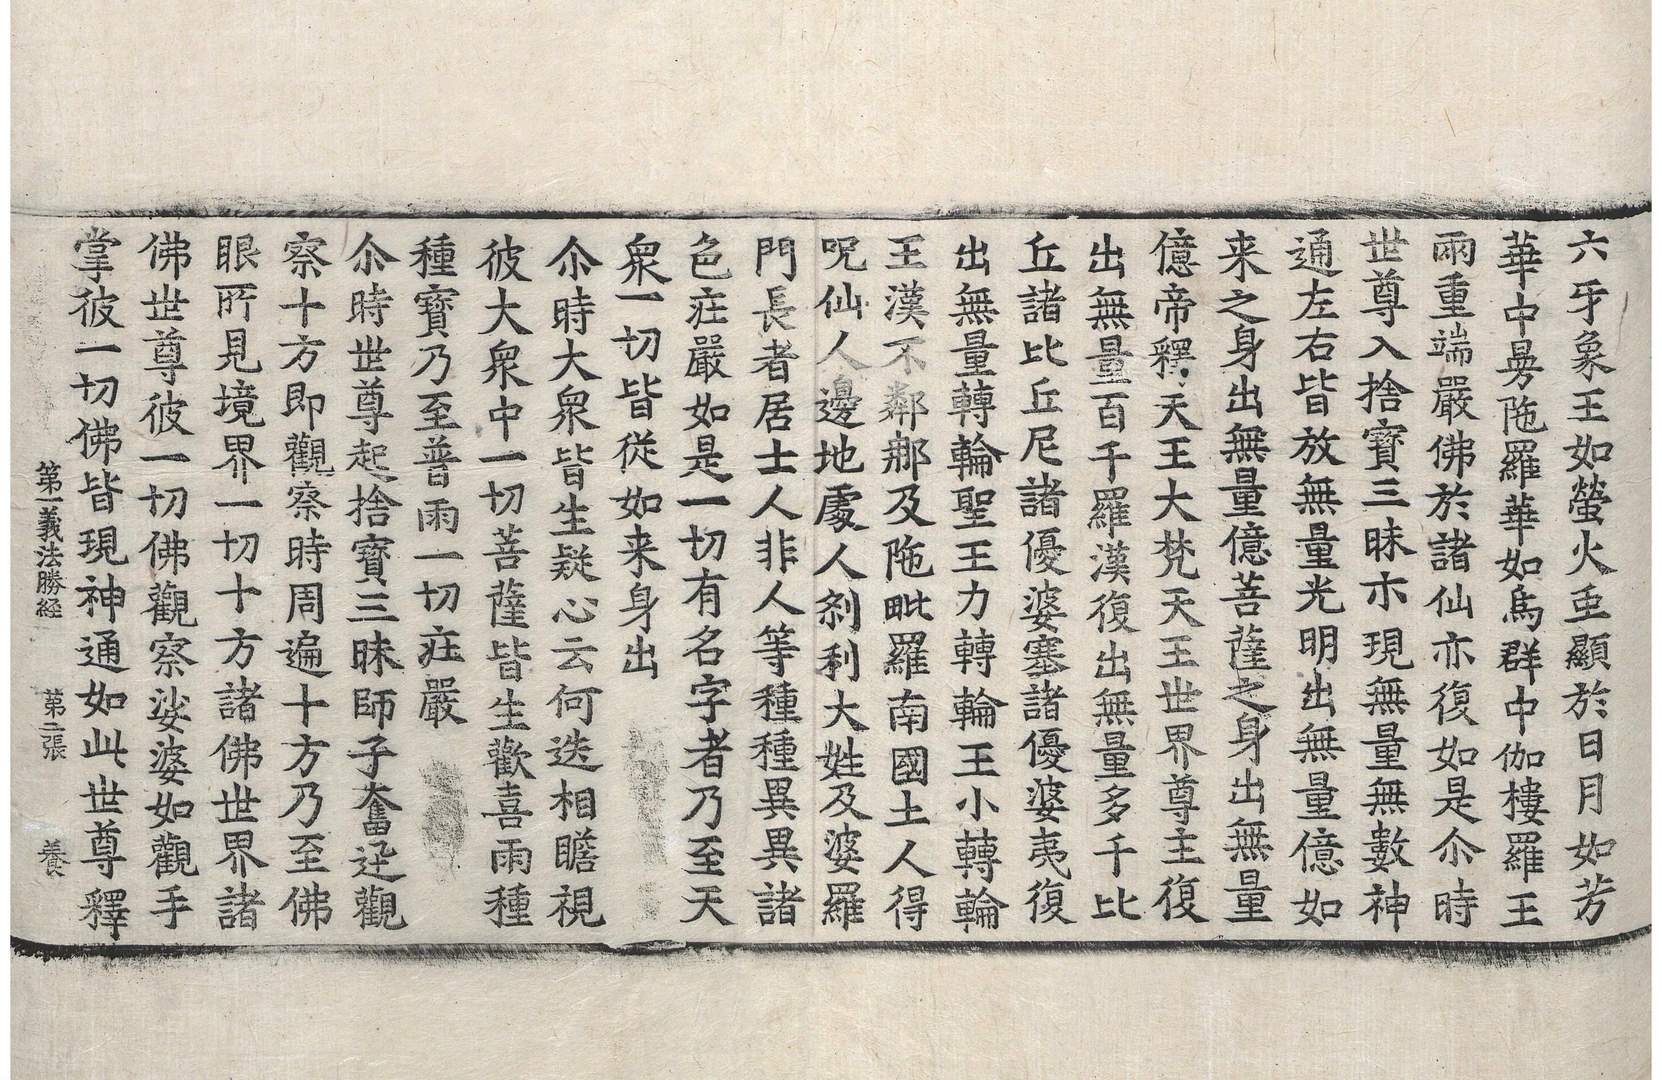 六牙象王如螢火虫顯於日月如芳
華中曼陁羅華如烏群中伽樓羅王
兩重端嚴佛於諸仙亦復如是尒時
世尊入捨寶三昧示現無量無數神
通左右皆放無量光明出無量億如
来之身出無量億菩薩之身出無量
億帝釋天王大梵天王世界尊主復
出無量百千羅漢復出無量多千比
丘諸比丘尼諸優婆塞諸優婆夷復
出無量轉輪聖王力轉輪王小轉輪
王漢不鄰那及陁毗羅南國土人得
呪仙人邊地處人刹利大姓及婆羅
門長者居士人非人等種種異異諸
色莊嚴如是一切有名字者乃至天
衆一切皆從如来身出
尒時大衆皆生疑心云何迭相瞻視
彼大衆中一切菩薩皆生歡喜雨種
種寶乃至普雨一切莊嚴
尒時世尊起捨寶三昧師子奮迅觀
察十方即觀察時周遍十方乃至佛
眼所見境界一切十方諸佛世界諸
佛世尊彼一切佛觀察娑婆如觀手
掌彼一切佛皆現神通如此世尊釋
第一義法勝經 第二張 養